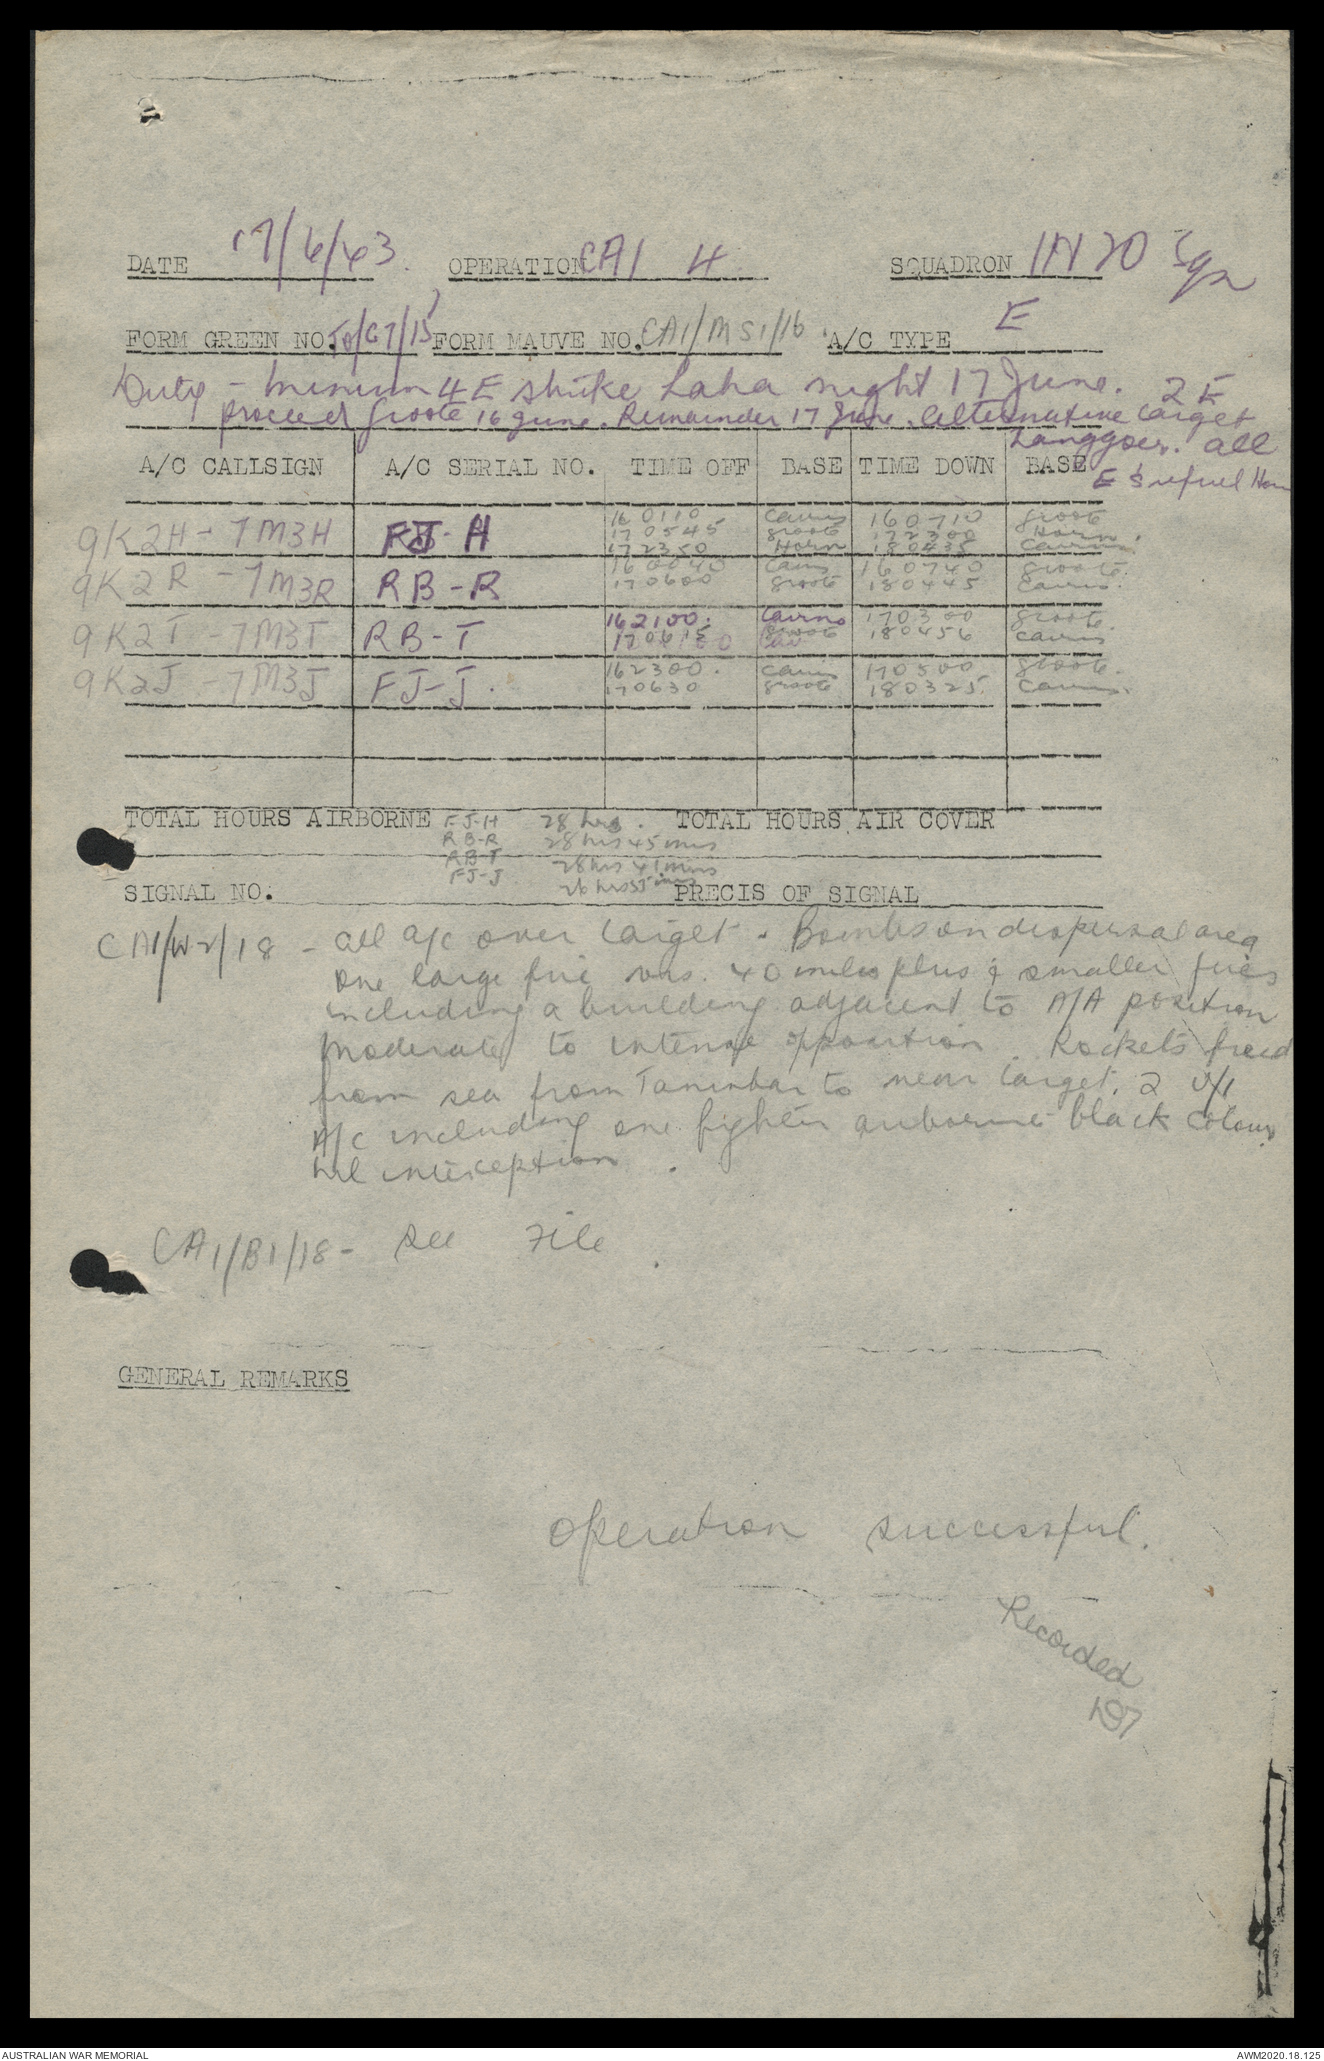 DATE 17/6/43. OPERATION CA1 4 SQUADRON 11 N 20 Sqn
FORM GREEN NO. T0/G7/15 FORM MAUVE NO. CA1/MS1/16 A/C TYPE E
Duty - minimum 4 E strike Laha night 17 June. 2 E
proceed Groote 16 June. Remainder 17 June. alternative target
Langgoer. all
E's refuel Horn
A/C CALLSIGN A/C SERIAL NO. TIME OFF BASE TIME DOWN BASE
9K2H - 7M3H FJ-H 160110 Cairns 160710 Groote
170545 Groote 172300 Horn.
172350 Horn 180435 Cairns.
9K2R - 7M3R RB-R 160040 Cairns 160740 Groote.
170600 Groote 180445 Cairns.
9K2T - 7M3T RB-T 162100. Cairns 170300 Groote.
170615 Groote 180456 Cairns
9K2J - 7M3J FJ-J. 162300. Cairns 170500 Groote.
170630 Groote 180325. Cairns.
TOTAL HOURS AIRBORNE FJ-H 28 hrs. TOTAL HOURS AIR COVER
RB-R 28 hrs 45 mins
RB-T 28 hrs 41 mins
FJ-J 26 hrs 55 mins
SIGNAL NO. PRECIS OF SIGNAL
CA1/W2/18 - all a/c over target. Bombs on dispersal area
one large fire vis. 40 miles plus & smaller fires
including a building adjacent to A/A position
Moderate to intense opposition. Rockets fired
from sea from Tanimbar to near target. 2 U/I
A/c including one fighter airborne black colour
Nil interception.
CA1/B1/18 - see File.
GENERAL REMARKS
Operation successful.
Recorded
AUSTRALIAN WAR MEMORIAL AWM2020.18.125